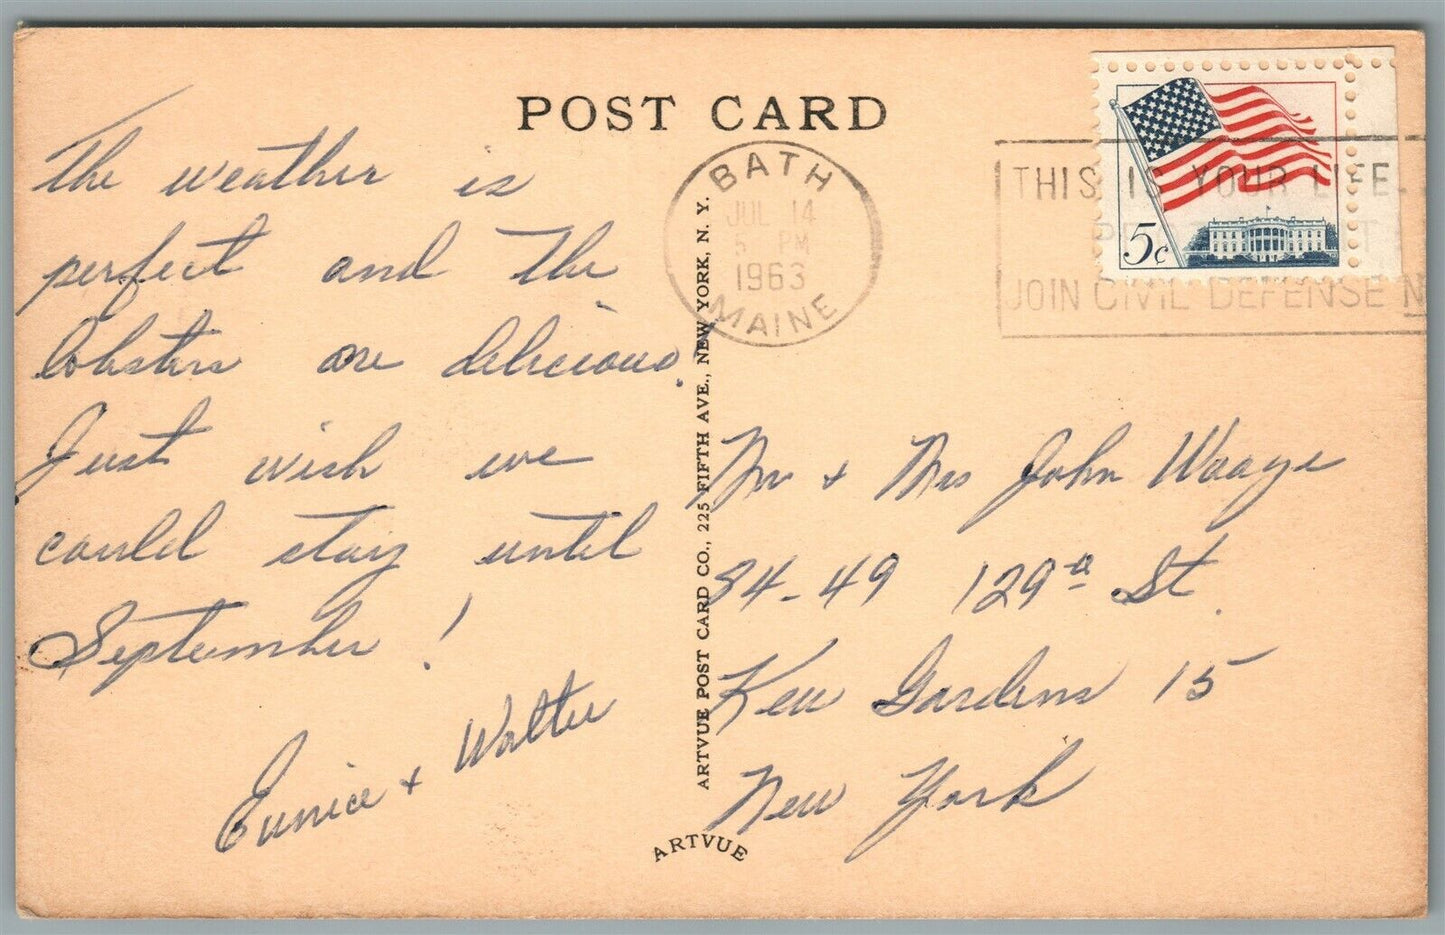 POST CARD
The weather is
perfect and the
lobsters are delicious.
Just wish we
could stay until
September!
Eunice + Walter
BATH
JUL 14
5 PM
1963
MAINE
THIS IS YOUR LIFE
JOIN CIVIL DEFENSE
5¢
Mr + Mrs John Waage
84-49 129th St.
Kew Gardens 15
New York
ARTVUE POST CARD CO., 225 FIFTH AVE., NEW YORK, N. Y.
ARTVUE